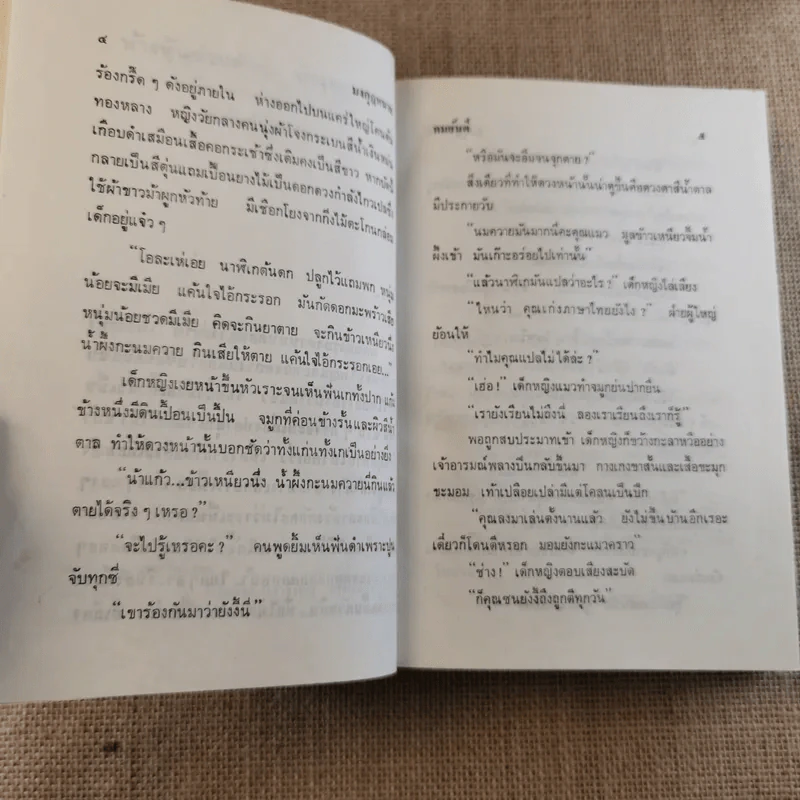 ๔
มงกุฎหนาม
ร้องกรี๊ด ๆ ดังอยู่ภายใน ห่างออกไปบนแคร่ใหญ่โคนต้น
ทองหลาง หญิงวัยกลางคนนุ่งผ้าโจงกระเบนสีน้ำเงิน
เกือบดำเสมือนเสื้อคอกระเช้าซึ่งเดิมคงเป็นสีขาว หาก
กลายเป็นสีตุ่นแถมเปื้อนยางไม้เป็นดอกดวงกำลังไกวเปลซึ่ง
ใช้ผ้าขาวม้าผูกหัวท้าย มีเชือกโยงจากกิ่งไม้ตะโกนกล่อม
เด็กอยู่แจ๋ว ๆ
“โอละเห่เอย นาฬิเกต้นดก ปลูกไว้แถมพก หนุ่ม
น้อยจะมีเมีย แค้นใจไอ้กระรอก มันกัดดอกมะพร้าวเสีย
หนุ่มน้อยชวดมีเมีย คิดจะกินยาตาย จะกินข้าวเหนียวนึ่ง
น้ำผึ้งกะนมควาย กินเสียให้ตาย แค้นใจไอ้กระรอกเอย...”
เด็กหญิงเงยหน้าขึ้นหัวเราะจนเห็นฟันเกทั้งปาก แก้ม
ข้างหนึ่งมีดินเปื้อนเป็นปื้น จมูกที่ค่อนข้างรั้นและผิวสีน้ำ
ตาล ทำให้ดวงหน้านั้นบอกชัดว่าทั้งแก่นทั้งเกเป็นอย่างยิ่ง
“น้าแก้ว...ข้าวเหนียวนึ่ง น้ำผึ้งกะนมควายนี่กินแล้ว
ตายได้จริง ๆ เหรอ ?”
“จะไปรู้เหรอคะ ?” คนพูดยิ้มเห็นฟันดำเพราะปูน
จับทุกซี่
“เขาร้องกันมาว่ายังงี้นี่”
๕
“หรือมันจะลิ้นจนจุกตาย ?”
สิ่งเดียวที่ทำให้ดวงหน้านั้นน่าดูขึ้นคือดวงตาสีน้ำตาล
มีประกายวับ
“นมควายมันมากนี่คะคุณแมว มูลข้าวเหนียวจิ้มน้ำ
ผึ้งเข้า มันเก๊าะอร่อยไปเท่านั้น”
“แล้วนาฬิเกมันแปลว่าอะไร ?” เด็กหญิงไล่เลียง
“ไหนว่า คุณเก่งภาษาไทยยังไง ?” ฝ่ายผู้ใหญ่
ย้อนให้
“ทำไมคุณแปลไม่ได้ล่ะ ?”
“เฮอ !” เด็กหญิงแมวทำจมูกย่นปากยื่น
“เรายังเรียนไม่ถึงนี่ ลองเราเรียนถึงเราก็รู้”
พอถูกสบประมาทเข้า เด็กหญิงก็ขว้างกะลาหวืออย่าง
เจ้าอารมณ์พลางปีนกลับขึ้นมา กางเกงขาสั้นและเสื้อขะมุก
ขะมอม เท้าเปลือยเปล่ามีแต่โคลนเป็นปึก
“คุณลงมาเล่นตั้งนานแล้ว ยังไม่ขึ้นบ้านอีกเรอะ
เดี๋ยวก็โดนตีหรอก มอมยังกะแมวคราว”
“ช่าง !” เด็กหญิงตอบเสียงสะบัด
“ก็คุณซนยังงี้ถึงถูกตีทุกวัน”